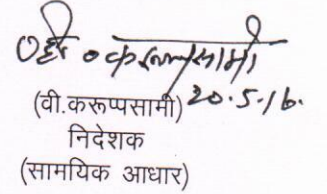 वी॰करूप्पसामी
20.5.16.
(वी.करूप्पसामी)
निदेशक
(सामयिक आधार)